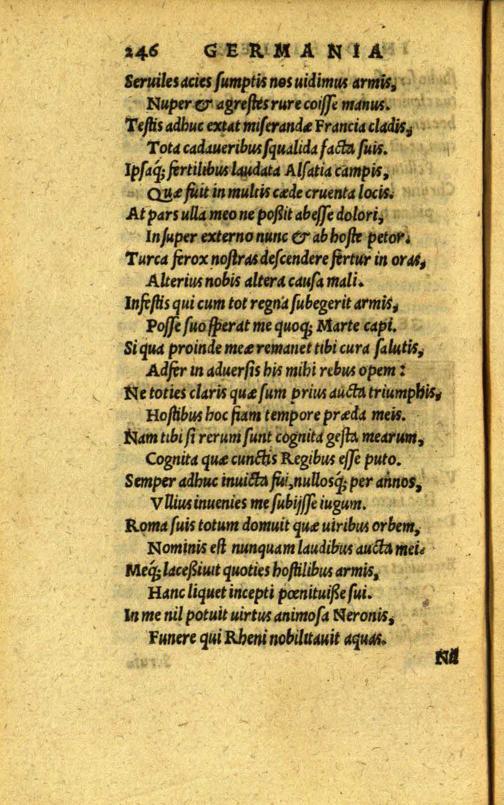 246 GERMANIA
Seruiles acies sumptis nos uidimus armis,
Nuper & agrestes rure coisse manus.
Testis adhuc extat miserandæ Francia cladis,
Tota cadaueribus squalida facta suis.
Ipsaq; fertilibus laudata Alsatia campis,
Quæ fuit in multis cæde cruenta locis.
At pars ulla meo ne poßit abesse dolori,
Insuper externo nunc & ab hoste petor.
Turca ferox nostras descendere fertur in oras,
Alterius nobis altera causa mali.
Infestis qui cum tot regna subegerit armis,
Posse suo sperat me quoq; Marte capi.
Si qua proinde meæ remanet tibi cura salutis,
Adfer in aduersis his mihi rebus opem:
Ne toties claris quæ sum prius aucta triumphis,
Hostibus hoc fiam tempore præda meis.
Nam tibi si rerum sunt cognita gesta mearum,
Cognita quæ cunctis Regibus esse puto.
Semper adhuc inuicta fui, nullosq; per annos,
Vllius inuenies me subijsse iugum.
Roma suis totum domuit quæ uiribus orbem,
Nominis est nunquam laudibus aucta mei.
Meq; laceßiuit quoties hostilibus armis,
Hanc liquet incepti pœnituiße sui.
In me nil potuit uirtus animosa Neronis,
Funere qui Rheni nobilitauit aquas.